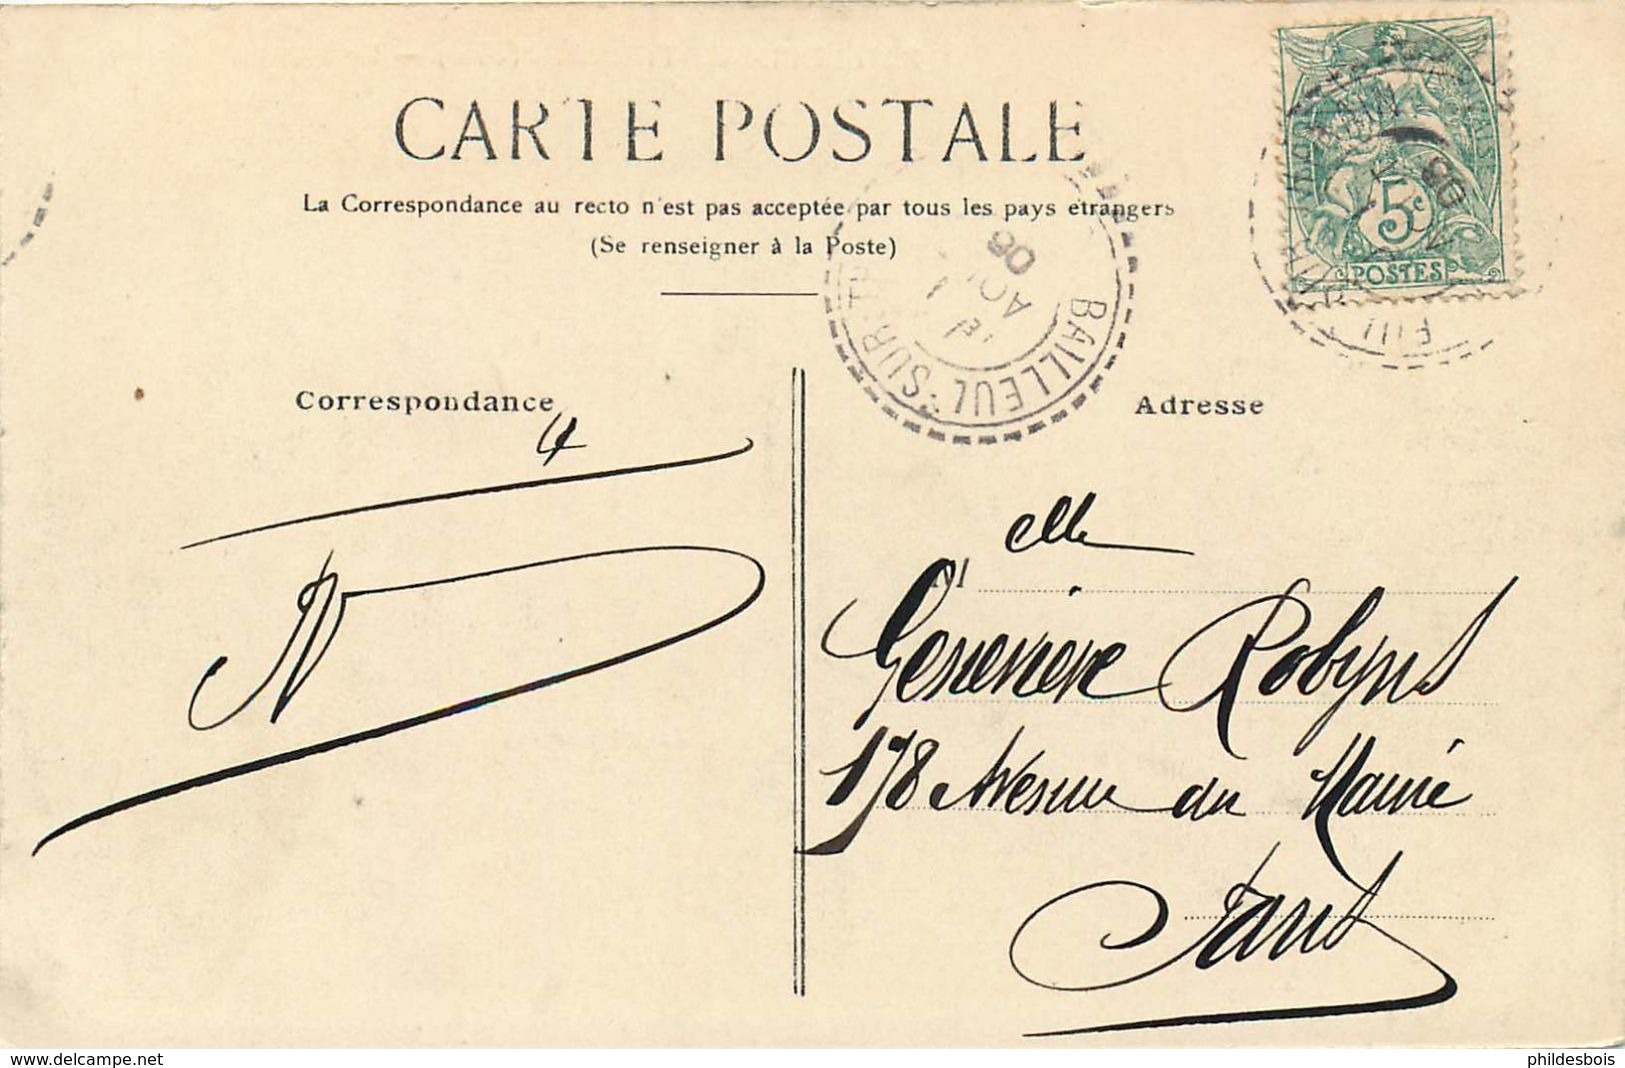 CARTE POSTALE
La Correspondance au recto n'est pas acceptée par tous les pays étrangers
(Se renseigner à la Poste)
5c
POSTES
BAILLEUL-SUR
AOU
06
Correspondance
Adresse
4
N
M elle
Geneviève Robyns
178 Avenue du Maine
Paris
www.delcampe.net
phildesbois